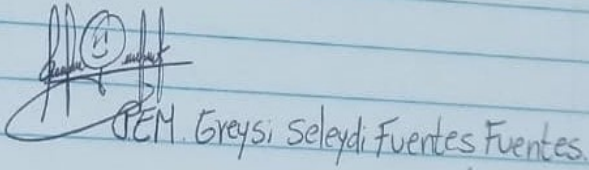 PEM. Greysi Seleydi Fuentes Fuentes.